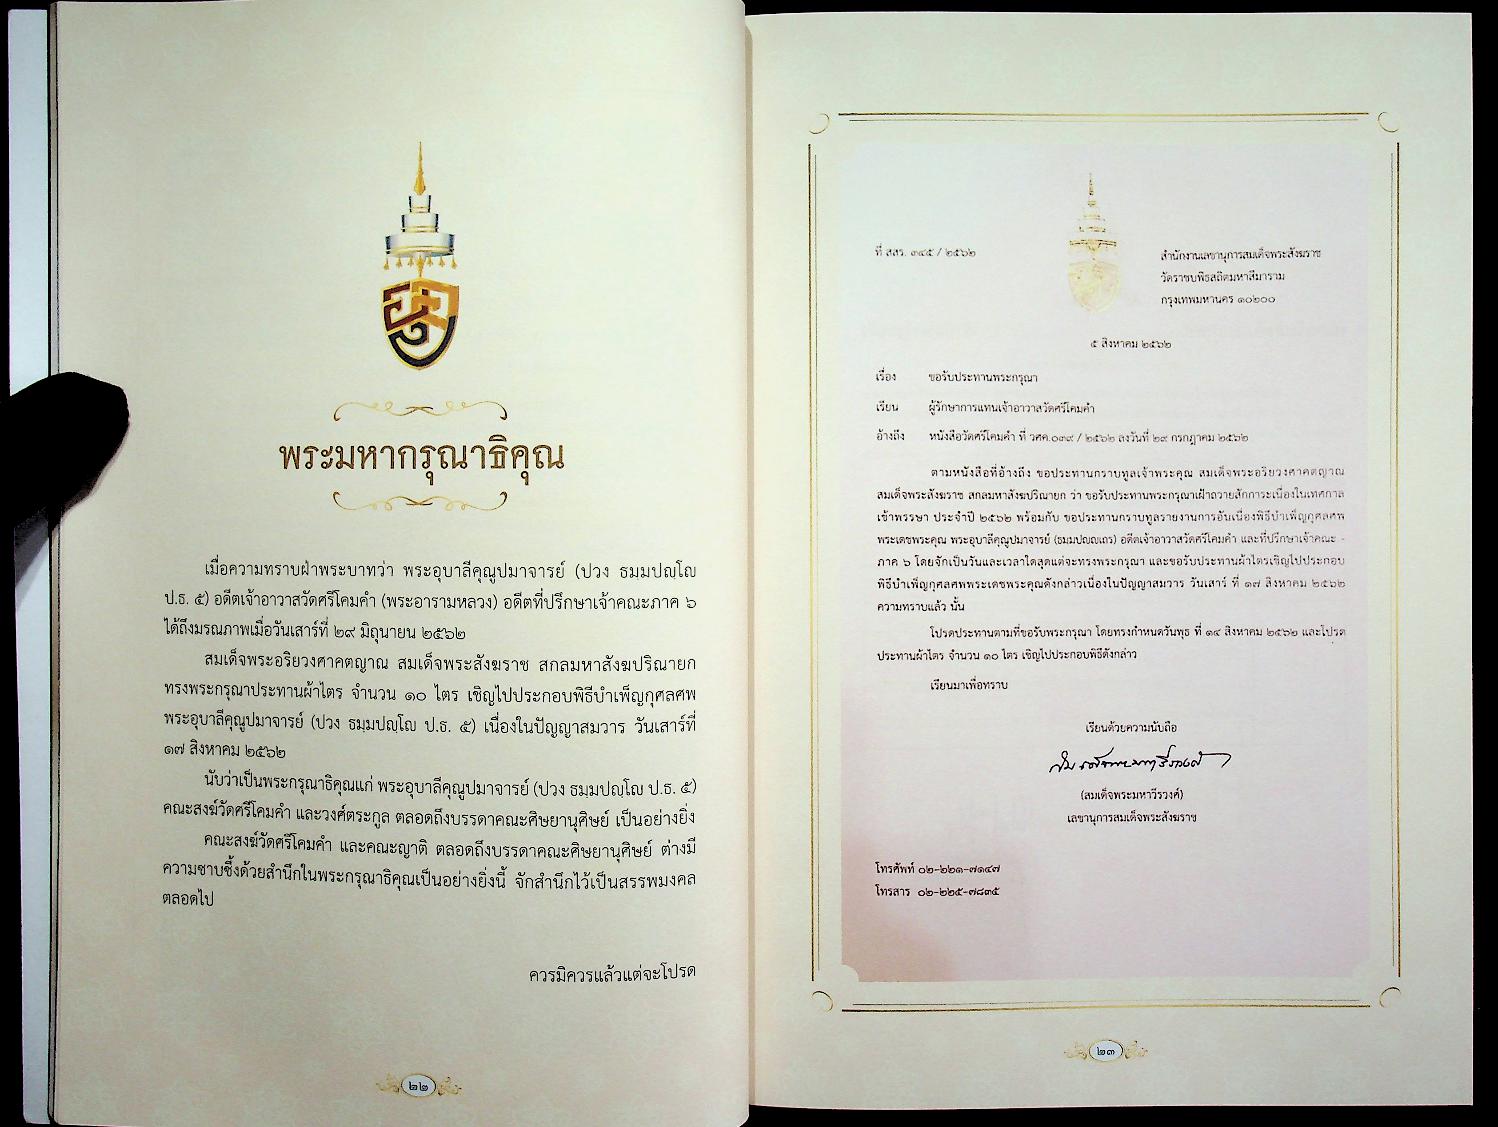 พระมหากรุณาธิคุณ
เมื่อความทราบฝ่าพระบาทว่า พระอุบาลีคุณูปมาจารย์ (ปวง ธมฺมปญฺโญ
ป.ธ. ๕) อดีตเจ้าอาวาสวัดศรีโคมคำ (พระอารามหลวง) อดีตที่ปรึกษาเจ้าคณะภาค ๖
ได้ถึงมรณภาพเมื่อวันเสาร์ที่ ๒๙ มิถุนายน ๒๕๖๒
สมเด็จพระอริยวงศาคตญาณ สมเด็จพระสังฆราช สกลมหาสังฆปริณายก
ทรงพระกรุณาประทานผ้าไตร จำนวน ๑๐ ไตร เชิญไปประกอบพิธีบำเพ็ญกุศลศพ
พระอุบาลีคุณูปมาจารย์ (ปวง ธมฺมปญฺโญ ป.ธ. ๕) เนื่องในปัญญาสมวาร วันเสาร์ที่
๑๗ สิงหาคม ๒๕๖๒
นับว่าเป็นพระกรุณาธิคุณแก่ พระอุบาลีคุณูปมาจารย์ (ปวง ธมฺมปญฺโญ ป.ธ. ๕)
คณะสงฆ์วัดศรีโคมคำ และวงศ์ตระกูล ตลอดถึงบรรดาคณะศิษยานุศิษย์ เป็นอย่างยิ่ง
คณะสงฆ์วัดศรีโคมคำ และคณะญาติ ตลอดถึงบรรดาคณะศิษยานุศิษย์ ต่างมี
ความซาบซึ้งด้วยสำนึกในพระกรุณาธิคุณเป็นอย่างยิ่งนี้ จักสำนึกไว้เป็นสรรพมงคล
ตลอดไป
ควรมิควรแล้วแต่จะโปรด
๒๒
ที่ สสร. ๓๔๕ / ๒๕๖๒
สำนักงานเลขานุการสมเด็จพระสังฆราช
วัดราชบพิธสถิตมหาสีมาราม
กรุงเทพมหานคร ๑๐๒๐๐
๕ สิงหาคม ๒๕๖๒
เรื่อง ขอรับประทานพระกรุณา
เรียน ผู้รักษาการแทนเจ้าอาวาสวัดศรีโคมคำ
อ้างถึง หนังสือวัดศรีโคมคำ ที่ วศค.๐๓๙ / ๒๕๖๒ ลงวันที่ ๒๙ กรกฎาคม ๒๕๖๒
ตามหนังสือที่อ้างถึง ขอประทานกราบทูลเจ้าพระคุณ สมเด็จพระอริยวงศาคตญาณ
สมเด็จพระสังฆราช สกลมหาสังฆปริณายก ว่า ขอรับประทานพระกรุณาเฝ้าถวายสักการะเนื่องในเทศกาล
เข้าพรรษา ประจำปี ๒๕๖๒ พร้อมกับ ขอประทานกราบทูลรายงานการอันเนื่องพิธีบำเพ็ญกุศลศพ
พระเดชพระคุณ พระอุบาลีคุณูปมาจารย์ (ธมฺมปญฺญเถร) อดีตเจ้าอาวาสวัดศรีโคมคำ และที่ปรึกษาเจ้าคณะ -
ภาค ๖ โดยจักเป็นวันและเวลาใดสุดแต่จะทรงพระกรุณา และขอรับประทานผ้าไตรเชิญไปประกอบ
พิธีบำเพ็ญกุศลศพพระเดชพระคุณดังกล่าวเนื่องในปัญญาสมวาร วันเสาร์ ที่ ๑๗ สิงหาคม ๒๕๖๒
ความทราบแล้ว นั้น
โปรดประทานตามที่ขอรับพระกรุณา โดยทรงกำหนดวันพุธ ที่ ๑๔ สิงหาคม ๒๕๖๒ และโปรด
ประทานผ้าไตร จำนวน ๑๐ ไตร เชิญไปประกอบพิธีดังกล่าว
เรียนมาเพื่อทราบ
เรียนด้วยความนับถือ
(สมเด็จพระมหาวีรวงศ์)
เลขานุการสมเด็จพระสังฆราช
โทรศัพท์ ๐๒-๒๒๑-๗๑๔๗
โทรสาร ๐๒-๒๒๕-๗๘๓๕
๒๓